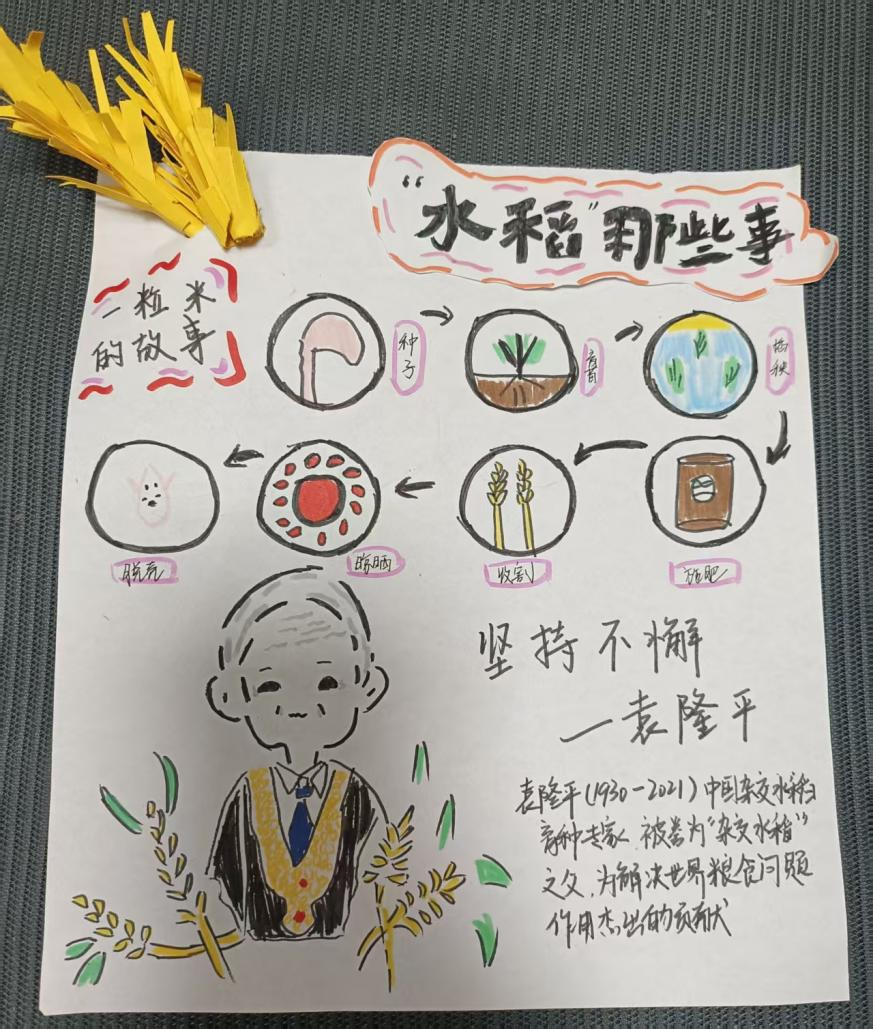 “水稻”那些事
一粒米
的故事
种子
育苗
插秧
施肥
收割
晾晒
脱壳
坚持不懈
—袁隆平
袁隆平(1930-2021)中国杂交水稻
育种专家,被誉为“杂交水稻”
之父,为解决世界粮食问题
作用杰出的贡献